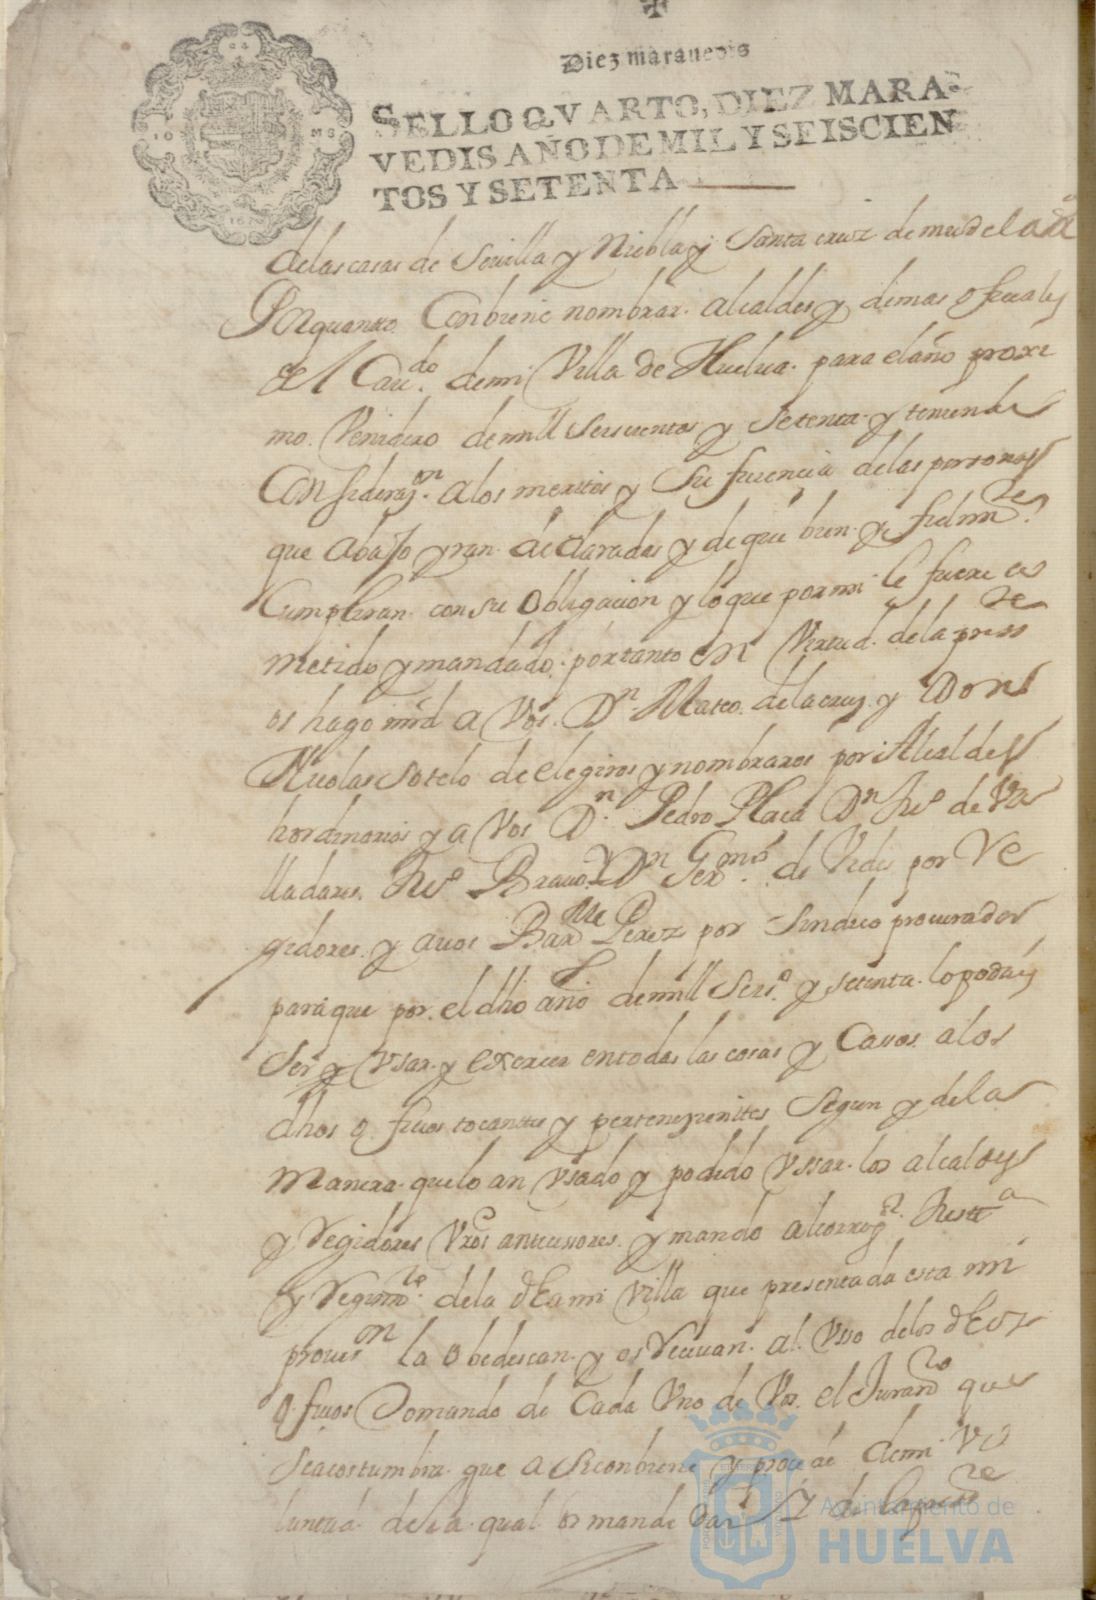 Diez maravedis
SELLO QVARTO, DIEZ MARA-
VEDIS AÑO DE MIL Y SEISCIEN
TOS Y SETENTA
de las casas de Sevilla y Niebla y Santa cruz de mudela &a
Por quanto Conbiene nombrar alcaldes y demas ofiçiales
del Cav.do de mi Villa de Huelva para el año proxi
mo Venidero de mill seiscientos y setenta y teniendo
Considераçion a los meritos y Sufiçiencia de las personas
que abajo yran declaradas y de que bien y fielm.te
Cumpliran con su obligaçion y lo que por mi le fuere co
metido y mandado. por tanto en Virtud de la press.te
os hago mrd a Vos Dn Mateo de la cruz y Don
Nicolas Sotelo de elegiros y nombraros por Alcaldes
hordinarios y a Vos Dn Pedro Plaça Dn Ju.o de Va
lladares Ju.o Bravo y Dn Ger.mo de por Re
gidores y a vos Bar.me Perez por Sindico procurador
para que por el dho año de mill Seis.o y setenta lo podais
Ser y Vsar y exercer en todas las cosas y Cassos a los
dhos ofiçios tocantes y perteneçientes Segun y de la
manera que lo an Vsado y podido Vssar los alcaldes
y Regidores Vros antecessores y mando al correg.r Justt.a
y Regim.to de la dha mi Villa que presentada esta mi
provis.on la obedescan y os Reçivan al Vsso de los dhos
ofiçios Tomando de Cada Vno de Vos el Juram.to que
Se acostumbra que a Si conbiene y proçede de mi Vo
luntad de la qual os mande dar y di la press.te
Ayuntamiento de
HUELVA